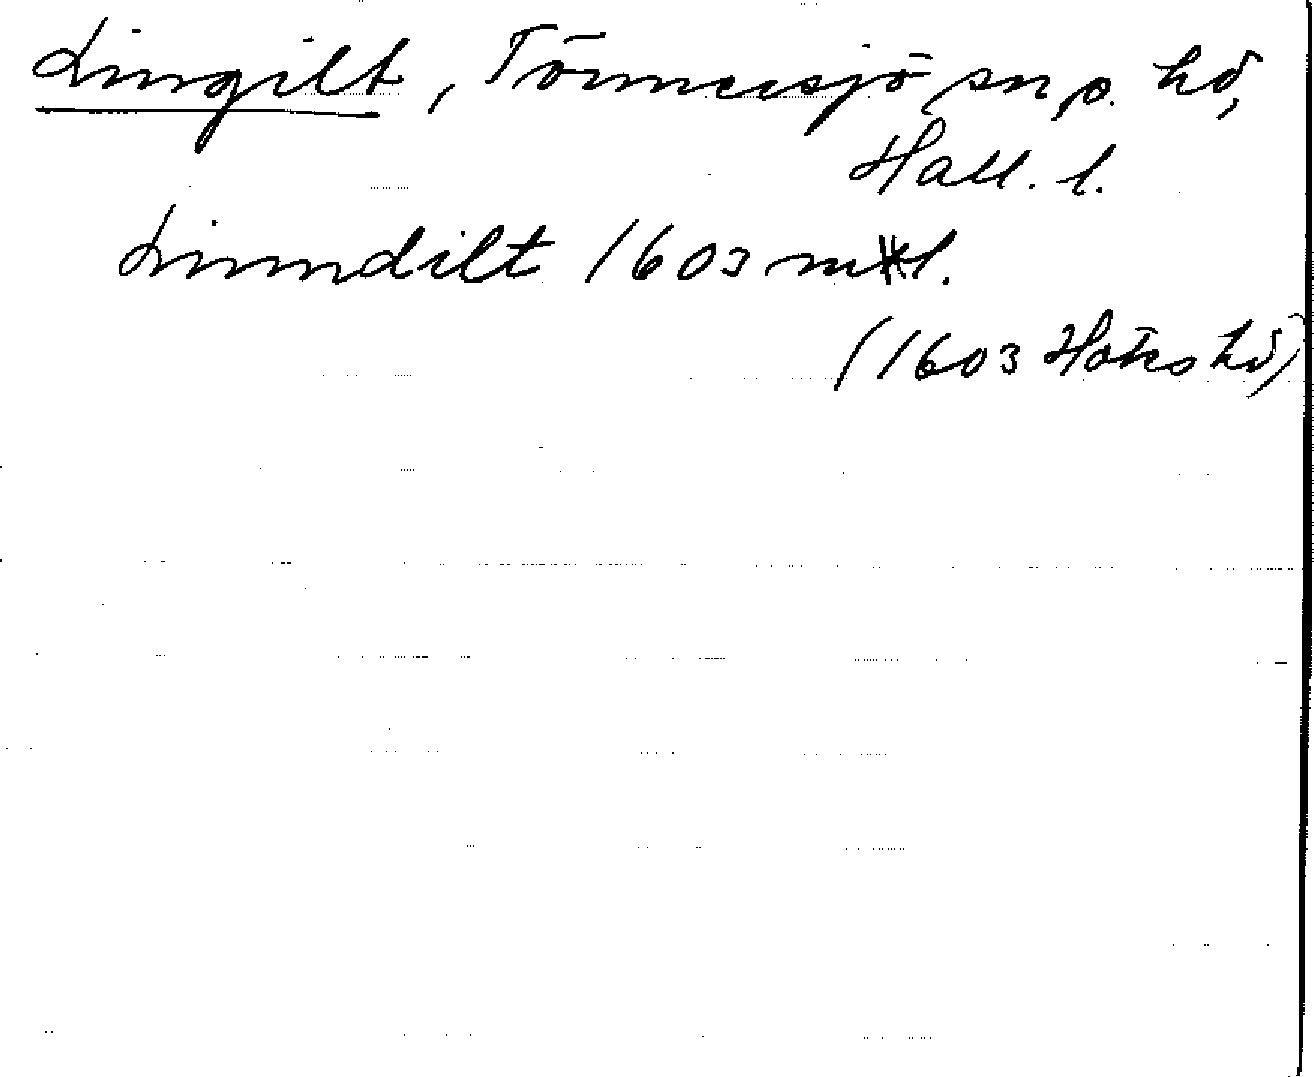 Lingilt, Tönnersjö sn, o. hd,
Hall. l.
Linndilt 1603 mtl.
(1603 Höks hd)